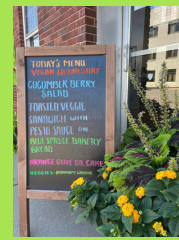 TODAY'S MENU
VEGAN WEDNESDAY
CUCUMBER BERRY
SALAD
TOASTED VEGGIE
SANDWICH WITH
PESTO SAUCE ON
BLUE SPRUCE BAKERY
BREAD
ORANGE OLIVE OIL CAKE
VEGGIES: